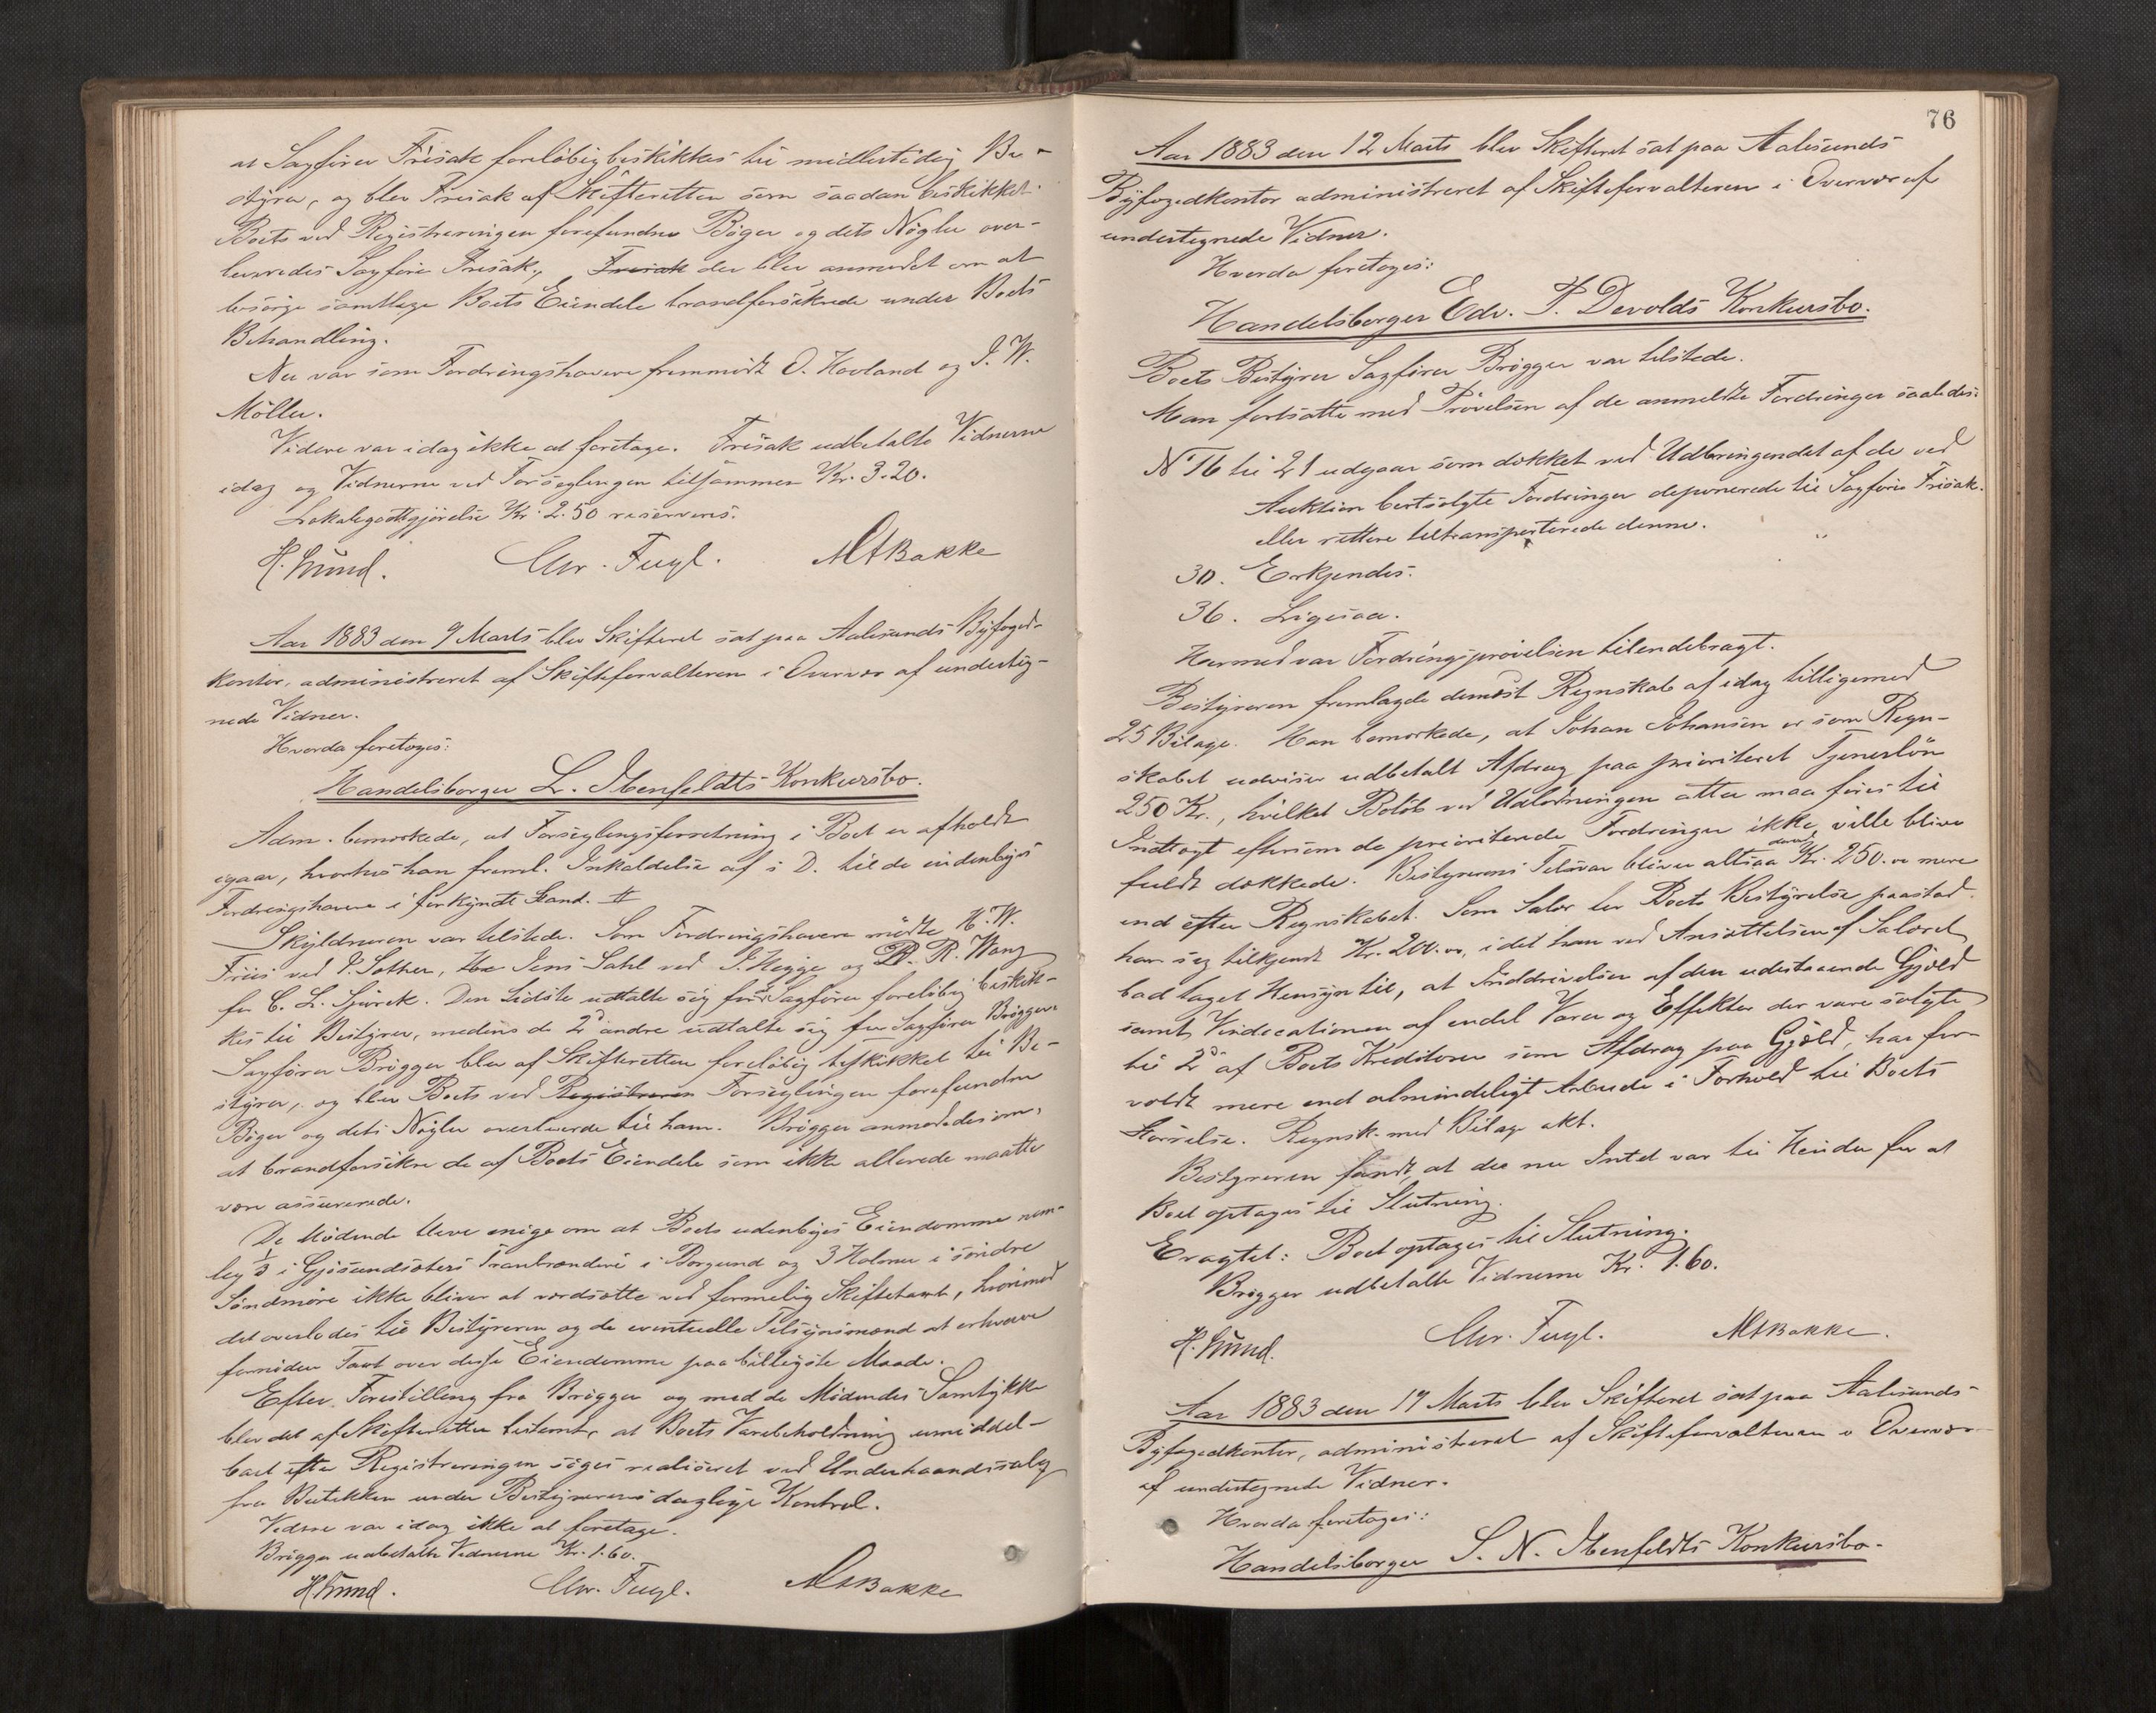 at Sagfører Frisak foreløbig beskikkes til midlertidig Be-
styrer, og blev Frisak af Skifteretten som saadan beskikket.
Boets ved Registreringen forefundne Bøger og dets Nøgler over-
leveredes Sagfører Frisak, Frisak der blev anmodet om at
besørge samtlige Boets Eiendele brandforsikrede under Boets
Behandling.
Nu var som Fordringshavere fremmødt O. Hovland og J. W.
Möller.
Videre var idag ikke at foretage. Frisak udbetalte Vidnerne
idag og Vidnerne ved Forseglingen tilsammen Kr. 3.20.
Lokalegodtgjörelse Kr. 2.50 reserveres.
H. Lund. Chr. Fugl. M A Bakke
Aar 1883 den 9 Marts blev Skifteret sat paa Aalesunds Byfoged-
kontor, administreret af Skifteforvalteren i Overvær af underteg-
nede Vidner.
Hvorda foretoges:
Handelsborger L. Ibenfeldts Konkursbo.
Adm. bemærkede, at Forseglingsforretning i Boet er afholdt
igaar, hvorhos han freml. Inkaldelse af s. D. til de indenbyes
Fordringshavere i forkyndt Stand.
Skyldneren var tilstede. Som Fordringshavere mødte H. W.
Friis ved P. Sother, Jens Sahl ved J. Hegge og B. R. Wang
for C. L. Sjurck. Den Sidste udtalte sig for at Sagfører foreløbig beskik-
kes til Bestyrer, medens de 2de andre udtalte sig for Sagfører Brögger.
Sagfører Brögger blev af Skifteretten foreløbig beskikket til Be-
styrer, og blev Boets ved Registreren Forseglingen forefundne
Bøger og dets Nøgler overleverede til ham. Brögger anmodedes om,
at brandforsikre de af Boets Eiendele som ikke allerede maatte
være assurerede.
De Mødende bleve enige om at Boets udenbyes Eiendomme nem-
lig 1/3 i Gjøsundsæters Tranbrænderi i Borgund og 3 Holmer i søndre
Söndmöre ikke bliver at værdsætte ved formelig Skiftetaxt, hvorimod
det overlodes til Bestyreren og de eventuelle Tilsynsmænd at erhverve
fornøden Taxt over disse Eiendomme paa billigste Maade.
Efter Forestilling fra Brögger og med de Mødendes Samtykke
blev det af Skifteretten bestemt, at Boets Varebeholdning umiddel-
bart efter Registreringen søges realiseret ved Underhaandssalg
fra Butikken under Bestyrerens daglige Kontrol.
Videre var idag ikke at foretage.
Brögger udbetalte Vidnerne Kr. 1.60.
H Lund. Chr. Fugl. M A Bakke
76
Aar 1883 den 12 Marts blev Skifteret sat paa Aalesunds
Byfogedkontor administreret af Skifteforvalteren i Overvær af
undertegnede Vidner.
Hvorda foretoges:
Handelsborger Edv. P. Devolds Konkursbo.
Boets Bestyrer Sagfører Brögger var tilstede.
Man fortsatte med Prøvelsen af de anmeldte Fordringer saaledes:
No 16 til 21 udgaar som dækket ved Udbringendet af de ved
Auktion bortsolgte Fordringer deponerede til Sagfører Frisak.
eller rettere tiltransporterede denne.
30. Erkjendes.
36. Ligesaa.
Hermed var Fordringsprøvelsen tilendebragt.
Bestyreren fremlagde dernæst Regnskab af idag tilligemed
25 Bilage. Han bemærkede, at Johan Johansen er som Regn-
skabet udviser udbetalt Afdrag paa prioriteret Tjenerløn
250 Kr., hvilket Beløb ved Udlodningen atter maa føres til
Indtægt eftersom de prioriterede Fordringer ikke derved ville blive
fuldt dækkede. Bestyrerens Tilsvar bliver altsaa Kr. 250.00 mere
end efter Regnskabet. Som Salær for Boets Bestyrelse paastod
han sig tilkjendt Kr. 200.00, idet han ved Ansættelsen af Salæret
bad taget Hensyn til, at Inddrivelsen af den udestaaende Gjæld
samt Vindicationen af endel Varer og Effekter der vare solgte
til 2de af Boets Kreditorer som Afdrag paa Gjæld, har for-
voldt mere end almindeligt Arbeide i Forhold til Boets
Størrelse. Regnsk. med Bilage akt.
Bestyreren fandt, at der nu Intet var til Hinder for at
Boet optages til Slutning.
Eragtet: Boet optages til Slutning.
Brögger udbetalte Vidnerne Kr. 1.60.
H. Lund. Chr. Fugl. M A Bakke.
Aar 1883 den 17 Marts blev Skifteret sat paa Aalesunds
Byfogedkontor, administreret af Skifteforvalteren i Overvær
af undertegnede Vidner.
Hvorda foretoges:
Handelsborger S. N. Ibenfeldts Konkursbo.